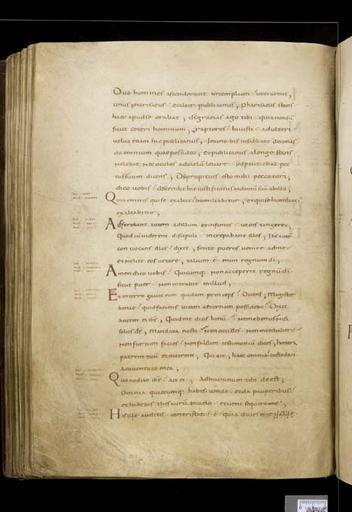 Duo homines ascendebant intemplum utorarent,
unus pharisaeus etalter publicanus, Pharisaeus stans
haec apudse orabat, ds gratias ago tibi quianonsu
sicut ceteri hominum, raptores iniusti adulteri
velut etiam hic publicanus, ieiuno bis insabbato decimas
do omnium quae possideo, etpublicanus alonge stans
nolebat nec oculos adcaelum levare, sed percutiebat pec
tussuum dicens, Ds propitius esto mihi peccatori,
dico vobis descendit hic iustificatus indomum sua abillo,
Quia omnis quise exaltat humiliabitur, et quise humiliat
exaltabitur,
Afferebant autem adillum etinfantes uteos tangeret,
Quod cum viderent discipuli increpabant illos, ihs aute
convocans illos dixit, sinite pueros venire adme
et nolite eos vetare, talium est enim regnum di,
Amen dico vobis, Quicumque nonacceperit regnu di
sicut puer non intrabit inillud,
Et interrogavit eum quidam princeps dicens, Magister
bone quid faciens vitam aeternam possidebo, Dixit
autem ei ihs, Quid me dicis bonu, nemo bonus nisi
solus ds, Mandata nosti, non occides, non moechaberis,
non furtum facies, non falsum testimonium dices, honora
patrem tuu et matrem, Qui ait, haec omnia custodivi
a iuventute mea,
Quo audito ihs ait ei, Adhuc unum tibi deest,
Omnia quaecumque habes vende et da pauperibus
et habebis thesaurum incaelo et veni sequere me,
His ille auditis contristatus e quia dives erat